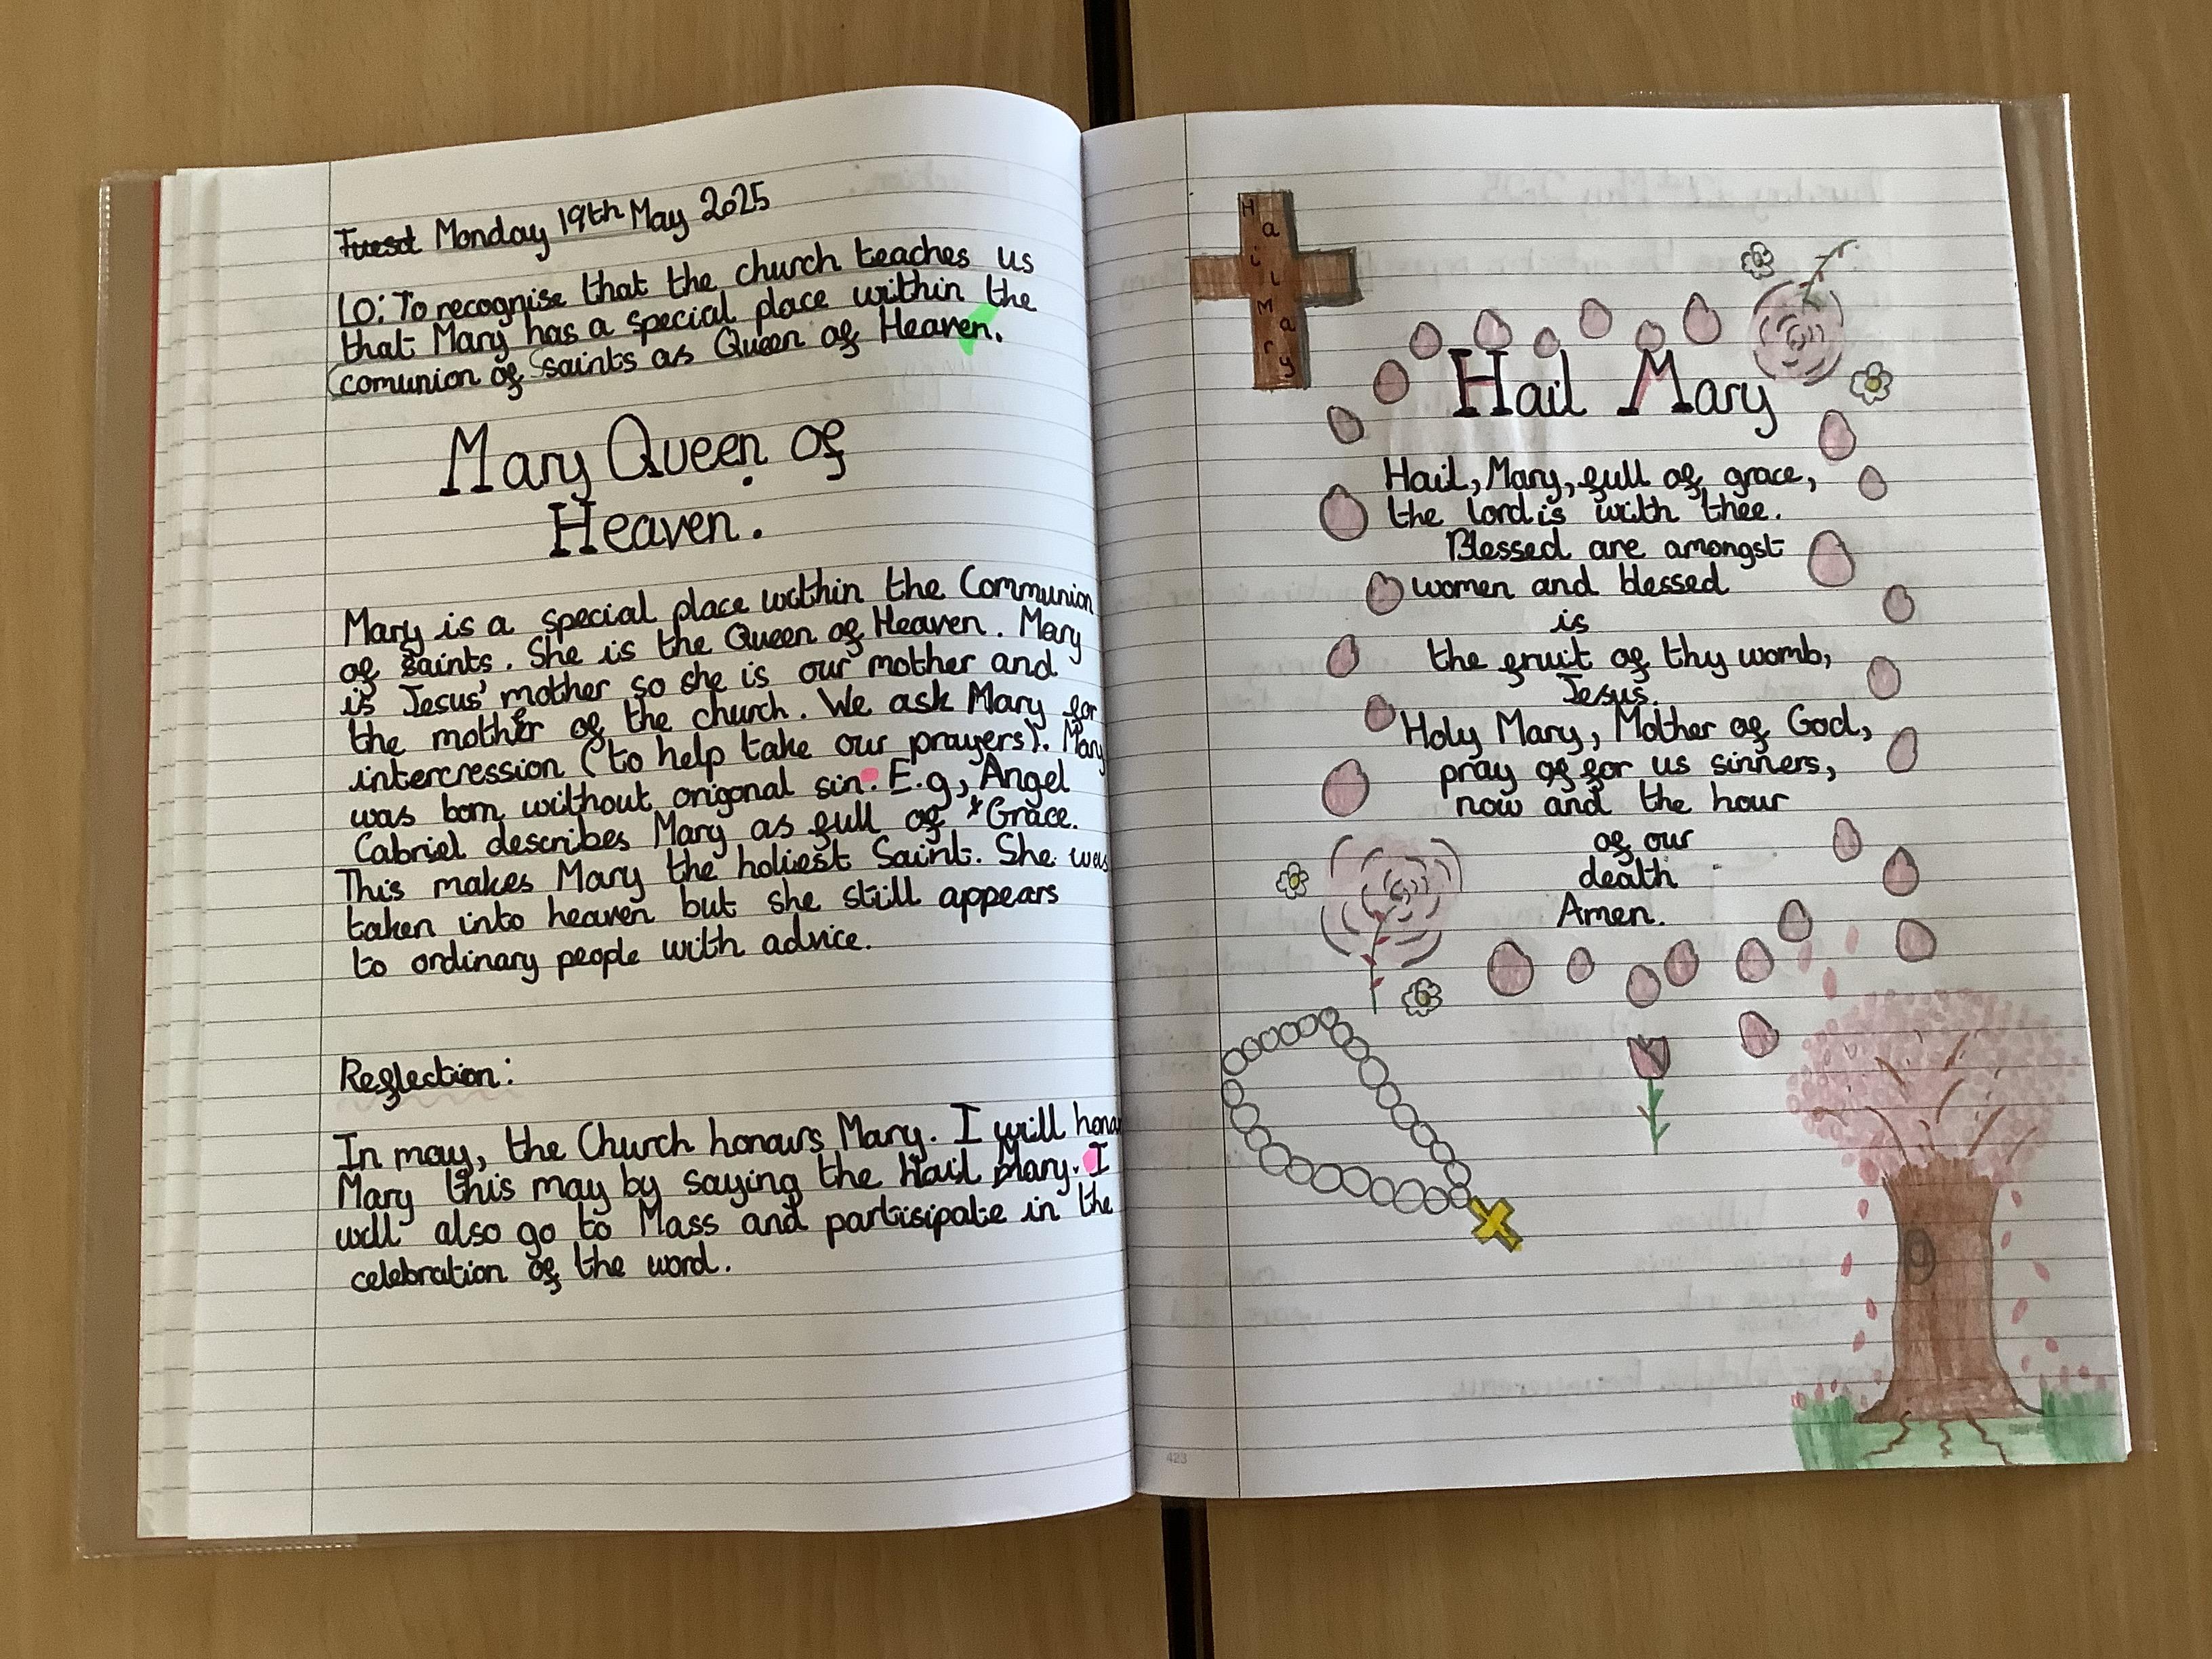 Tuesd Monday 19th May 2025
LO: To recognise that the church teaches us
that Mary has a special place within the
comunion of saints as Queen of Heaven.
Mary Queen of
Heaven.
Mary is a special place within the Communion
of saints. She is the Queen of Heaven. Mary
is Jesus' mother so she is our mother and
the mother of the church. We ask Mary for
intercression (to help take our prayers). Mary
was born without origonal sin. E.g, Angel
Gabriel describes Mary as full of *Grace.
This makes Mary the holiest Saint. She was
taken into heaven but she still appears
to ordinary people with advice.
Reflection:
In may, the Church honours Mary. I will honor
Mary this may by saying the Hail Mary. I
will also go to Mass and partisipate in the
celebration of the word.
Hail Mary
Hail Mary
Hail, Mary, full of grace,
the lord is with thee.
Blessed are amongst
women and blessed
is
the fruit of thy womb,
Jesus.
Holy Mary, Mother of God,
pray of for us sinners,
now and the hour
of our
death
Amen.
423